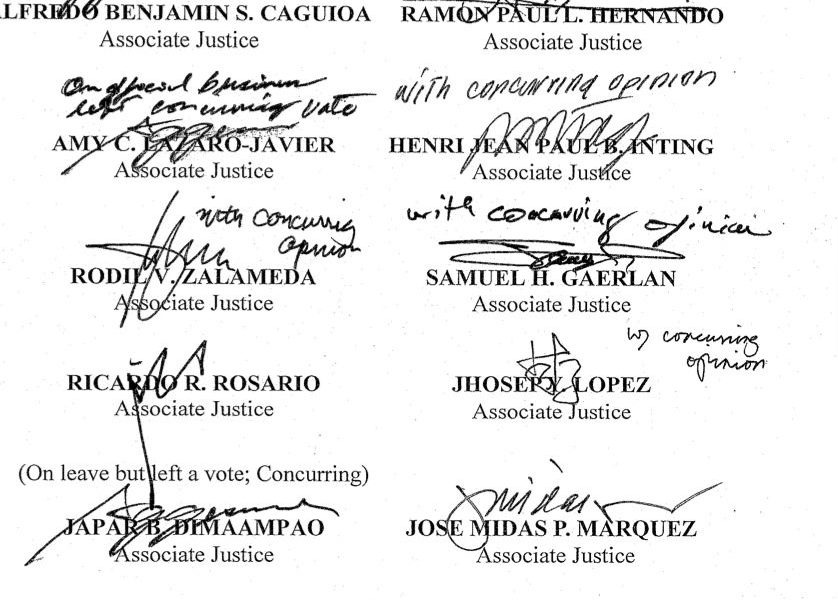 ALFREDO BENJAMIN S. CAGUIOA
Associate Justice
RAMON PAUL L. HERNANDO
Associate Justice
On official business
left concurring vote
AMY C. LAZARO-JAVIER
Associate Justice
with concurring opinion
HENRI JEAN PAUL B. INTING
Associate Justice
with concurring
opinion
RODIL V. ZALAMEDA
Associate Justice
with concurring opinion
SAMUEL H. GAERLAN
Associate Justice
RICARDO R. ROSARIO
Associate Justice
w/ concurring
opinion
JHOSEP Y. LOPEZ
Associate Justice
(On leave but left a vote; Concurring)
JAPAR B. DIMAAMPAO
Associate Justice
JOSE MIDAS P. MARQUEZ
Associate Justice